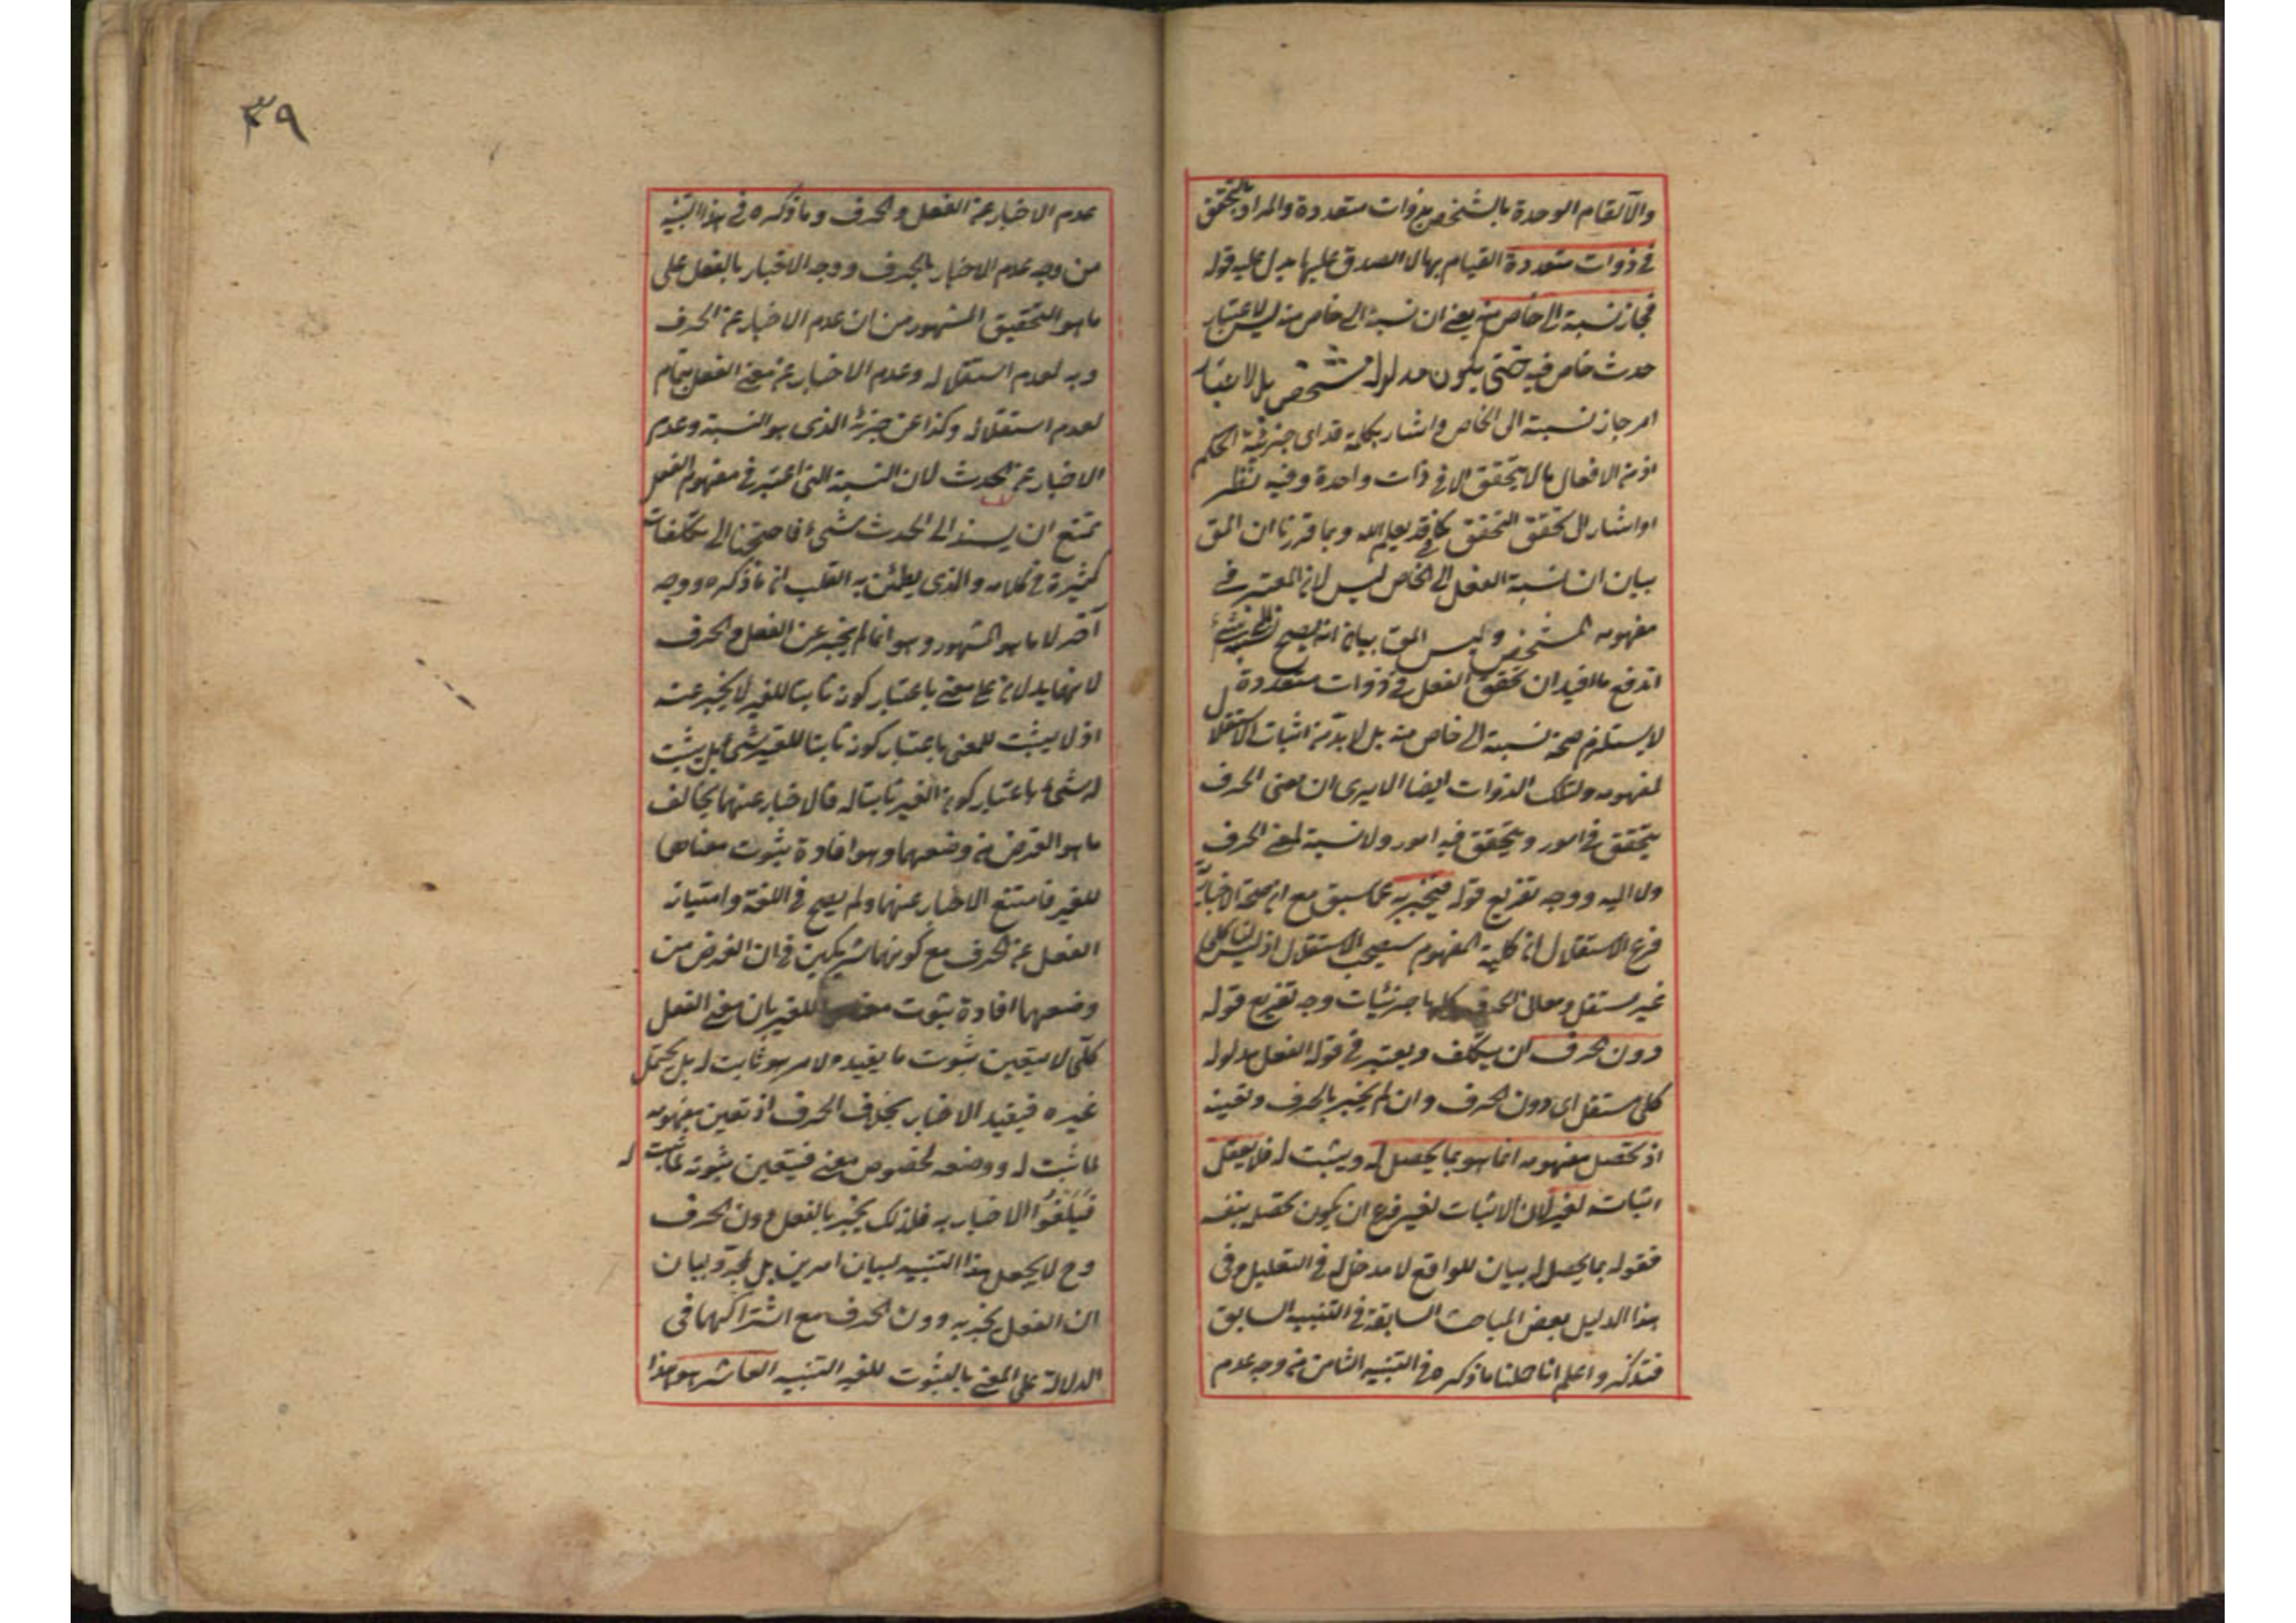 والا لقام الوحدة بالشخص بذوات متعددة والمراد بالتحقق
في ذوات متعددة القيام بها لا الصدق عليها يدل عليه قوله
فجاز نسبة الى خاص منه يعني ان نسبة الى خاص منه ليس لاعتبار
حدث خاص فيه حتى يكون مدلوله مشخص بل لاعتبار
امر جاز نسبة الى الخاص واشار بكلمة قد اى جزئية الحكم
اذ من الافعال ما لا يتحقق الا في ذات واحدة وفيه نظر
او اشار الى تحقق التحقق كما في قد يعلم الله وبما قررنا ان المق
بيان ان نسبة الفعل الى الخاص ليس لان المعتبر في
مفهومه المشخص وليس المق بيان انه يصح
اندفع ما قيل ان تحقق الفعل في ذوات متعددة
لا يستلزم صحة نسبة الى خاص منه بل لا بد من اثبات الاستقلال
لمفهومه ولتلك الذوات ايضا الا يرى ان معنى الحرف
يتحقق في امور ويتحقق فيه امور ولا نسبة لمعنى الحرف
ولا اليه ووجه تفريع قوله فيخبر به عما سبق مع ان صحة الاخبار به
فرع الاستقلال ان كلية المفهوم يستصحب الاستقلال اذ ليس لنا كلي
غير مستقل ومعاني الحرف كلها جزئيات وجه تفريع قوله
دون الحرف ان يتكلف ويعتبر في قوله الفعل مدلوله
كلى مستقل اى دون الحرف وان لم يخبر بالحرف وتعينه
اذ تحصل مفهومه انما هو بما يحصل له ويثبت له فلا يعقل
اثباته لغيره لان الاثبات لغيره فرع ان يكون تحصل بنفسه
فقوله بما يحصل له بيان للواقع لا مدخل له في التعليل وفى
هذا الدليل بعض المباحث السابقة في التنبيه السابق
فتذكر واعلم انا حملنا ما ذكره في التنبيه الثامن من وجه عدم
٣٩
عدم الاخبار عن الفعل والحرف وما ذكره في هذا التنبيه
من وجه عدم الاخبار بالحرف ووجه الاخبار بالفعل على
ما هو التحقيق المشهور من ان عدم الاخبار عن الحرف
وبه لعدم استقلاله وعدم الاخبار عن معنى الفعل بتمامه
لعدم استقلاله وكذا عن جزئه الذى هو النسبة وعدم
الاخبار عن الحدث لان النسبة التى اعتبر في مفهوم الفعل
تمتنع ان يسند الى الحدث شيء فاحتجنا الى تكلفات
كثيرة في كلامه والذى يطمئن به القلب ان ما ذكره ووجه
آخر لا ما هو المشهور وهو انما لم يخبر عن الفعل والحرف
لانهما يدلان على معنى باعتبار كونه ثابتا للغير لا يخبر عنه
اذ لا يثبت للمعنى باعتبار كونه ثابتا للغير شيء بل يثبت
له شيء باعتبار كون الغير ثابتا له فالاخبار عنهما يخالف
ما هو الغرض من وضعهما وهو افادة ثبوت معناهما
للغير فامتنع الاخبار عنهما ولم يصح في اللغة وامتياز
الفعل عن الحرف مع كونهما شريكين في ان الغرض من
وضعهما افادة ثبوت للغير بان معنى الفعل
كلى لا يتعين ثبوت ما يفيده لامر هو ثابت له بل يحتمل
غيره فيفيد الاخبار بخلاف الحرف اذ تعين مفهومه
لما ثبت له ووضعه لخصوص معنى فيتعين ثبوته لما ثبت له
فيلغوا الاخبار به فلذلك يخبر بالفعل دون الحرف
وح لا يجعل هذا التنبيه لبيان امرين بل لمجرد بيان
ان الفعل يخبر به دون الحرف مع اشتراكهما في
الدلالة على المعنى بالثبوت للغير التنبيه العاشر هو هذا